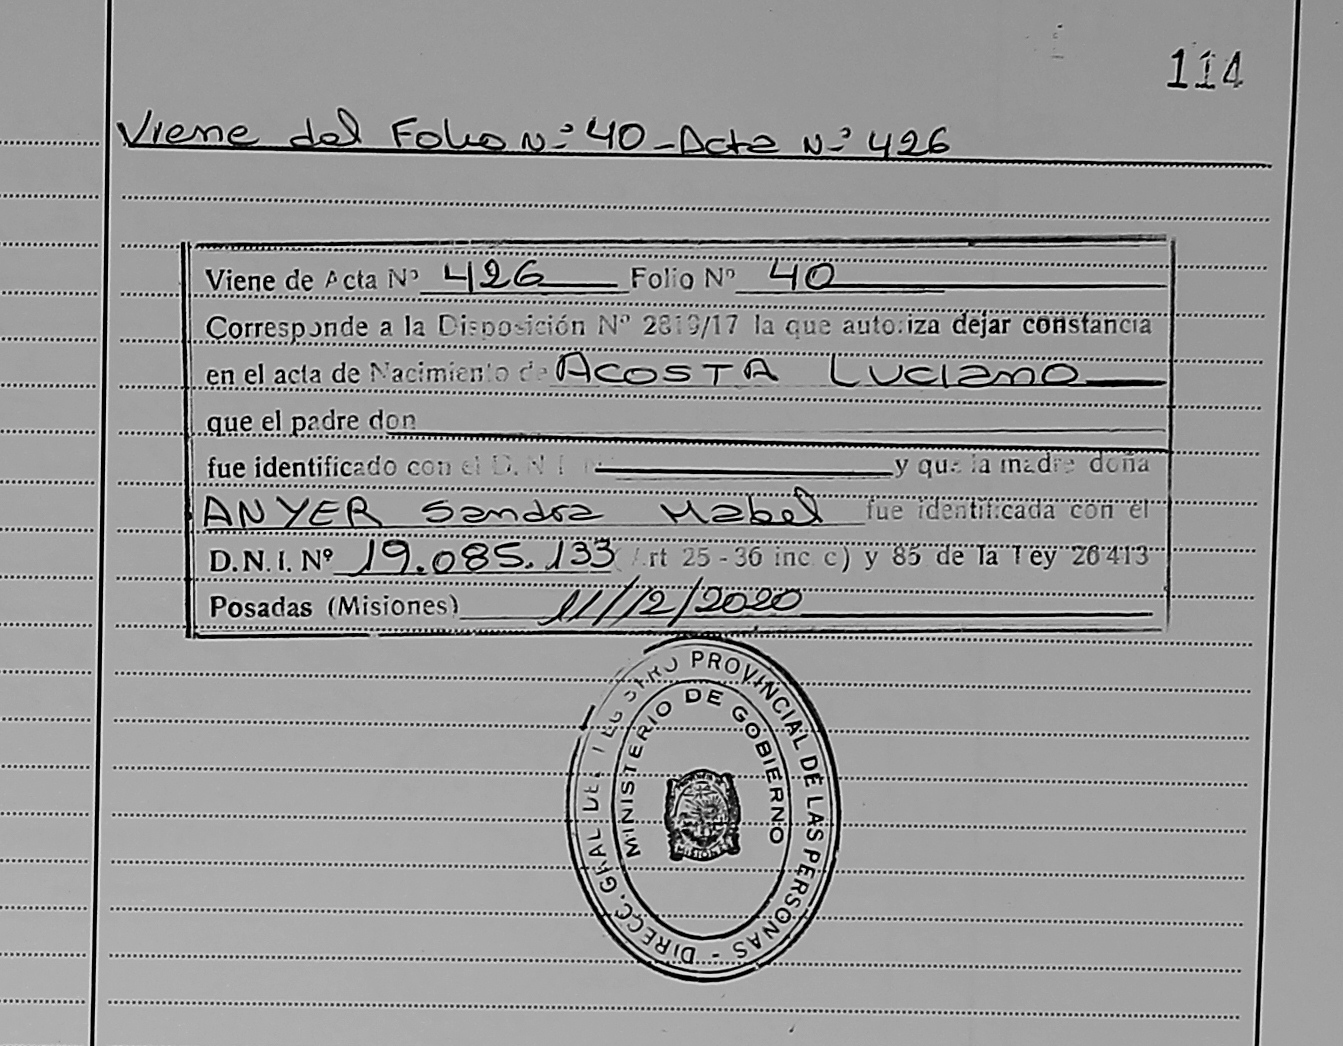 114
Viene del Folio N.º 40 - Acta N.º 426
Viene de Acta Nº 426 Folio Nº 40
Corresponde a la Disposición Nº 2819/17 la que autoriza dejar constancia
en el acta de Nacimiento de ACOSTA Luciano
que el padre don
fue identificado con el D.N.I. y que la madre doña
ANYER Sandra Mabel fue identificada con el
D.N.I. Nº 19.085.133 (Art 25 - 36 inc. c) y 85 de la Ley 26413
Posadas (Misiones) 11/12/2020
DIRECC. GRAL DEL REGISTRO PROVINCIAL DE LAS PERSONAS -
MINISTERIO DE GOBIERNO
MISIONES